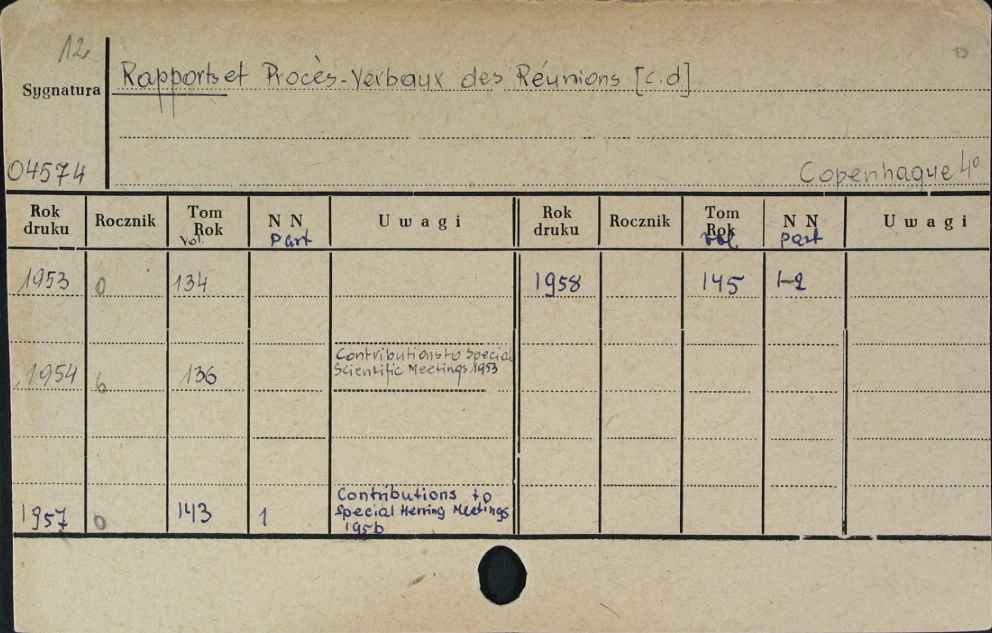 12.
Sygnatura
Rapports et Procès-Verbaux des Réunions [c.d.]
04574
Copenhague 4°
Rok druku Rocznik Tom Rok vol. N N Part Uwagi Rok druku Rocznik Tom Rok vol. N N part Uwagi
1953 0 134 1958 145 1-2
1954 6 136 Contributions to Special
Scientific Meetings 1953
1957 0 143 1 Contributions to
Special Herring Meetings
1956